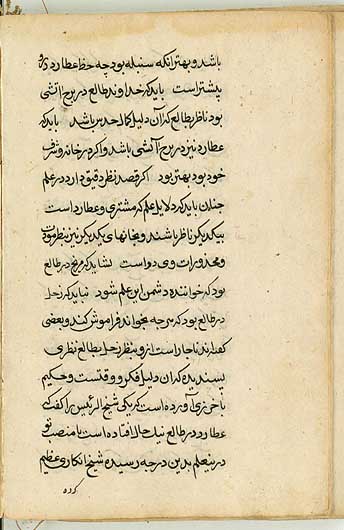 باشد و بهتر آنکه سنبله بود چه حظ عطارد درو
بیشتر است باید که خداوند طالع در برج آتشی
بود ناظر بطالع که آن دلیل کمال حدس باشد باید که
عطارد نیز در برج آتشی باشد و اگر در خانه و شرف
خود بود بهتر بود اگر قصد نظر دقیق دارد در علم
چنان باید که دلایل علم که مشتری و عطارد است
بیکدیگر ناظر باشند و بخانهای یکدیگر نیز بنظر مودت
و محذورات وی دو است نشاید که مریخ در طالع
بود که خواننده دشمن این علم شود نباید که زحل
در طالع بود که هرچه بخواند فراموش کند و بعضی
گفته‌اند ناچار است از و بنظر زحل بطالع نظری
پسندیده که آن دلیل فکر و وقتست و حکیم
آورده است که یکی شیخ الرئیس را گفت که
عطارد در طالع نیک حال افتاده است تا منصب تو
درین علم بدین درجه رسیده شیخ انکاری عظیم
کرده